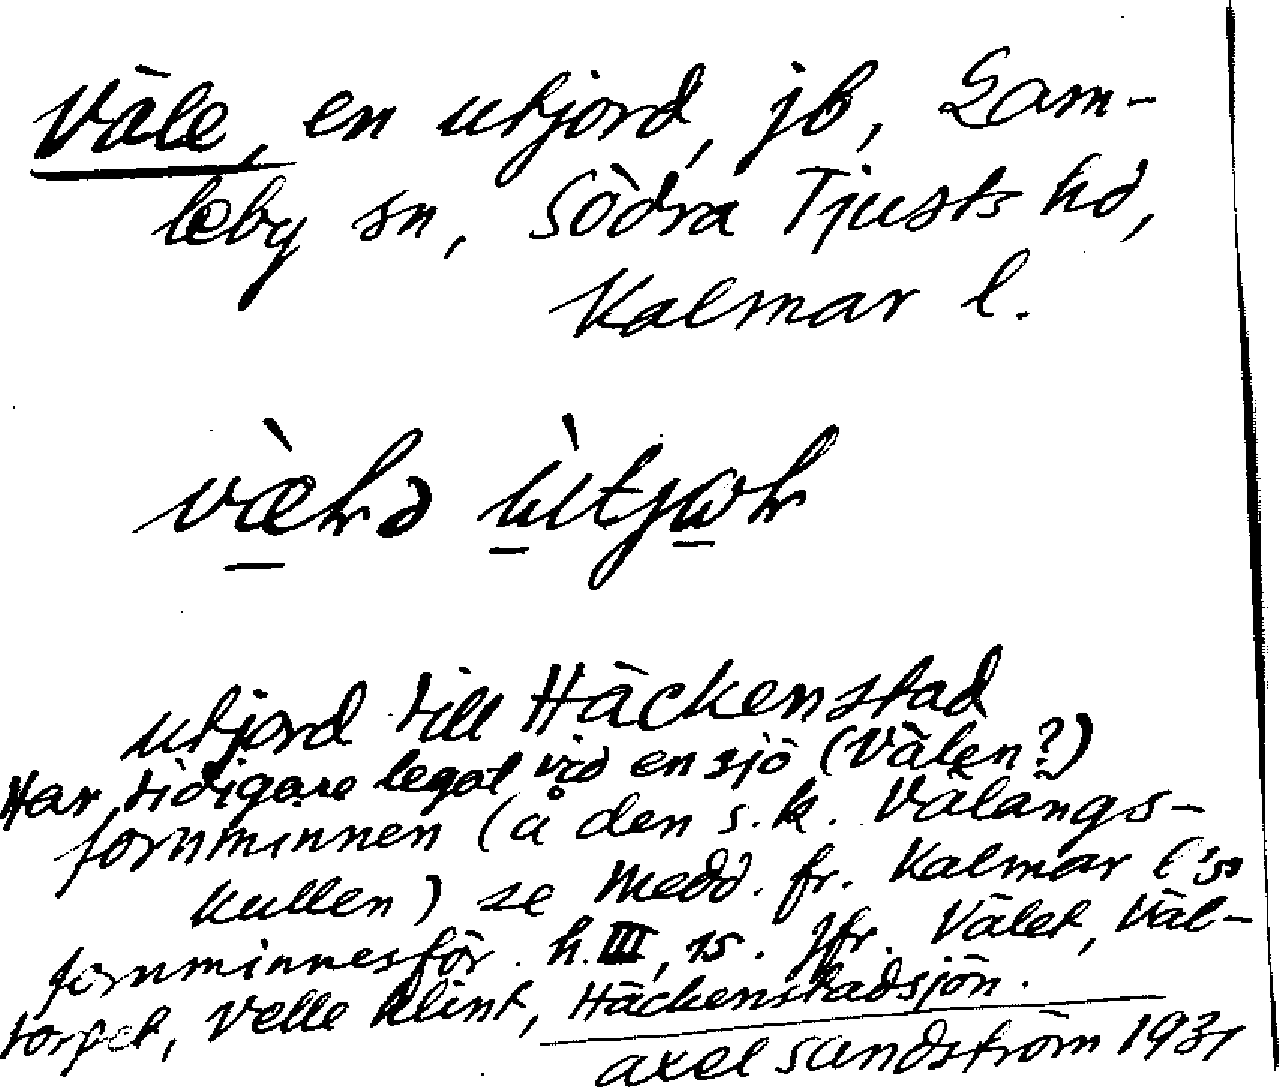 Väle, en utjord, jb, Gam-
leby sn, Södra Tjusts hd,
Kalmar l.
utjord till Häckenstad
Har tidigare legat vid en sjö (Välen?)
fornminnen (å den s.k. Välängs-
kullen) se Medd. fr. Kalmar l:s
fornminnesför. h. III, 15. Jfr. Välet, Väl-
torpet, Velle Klint, Häckenstadsjön.
Axel Sandström 1931